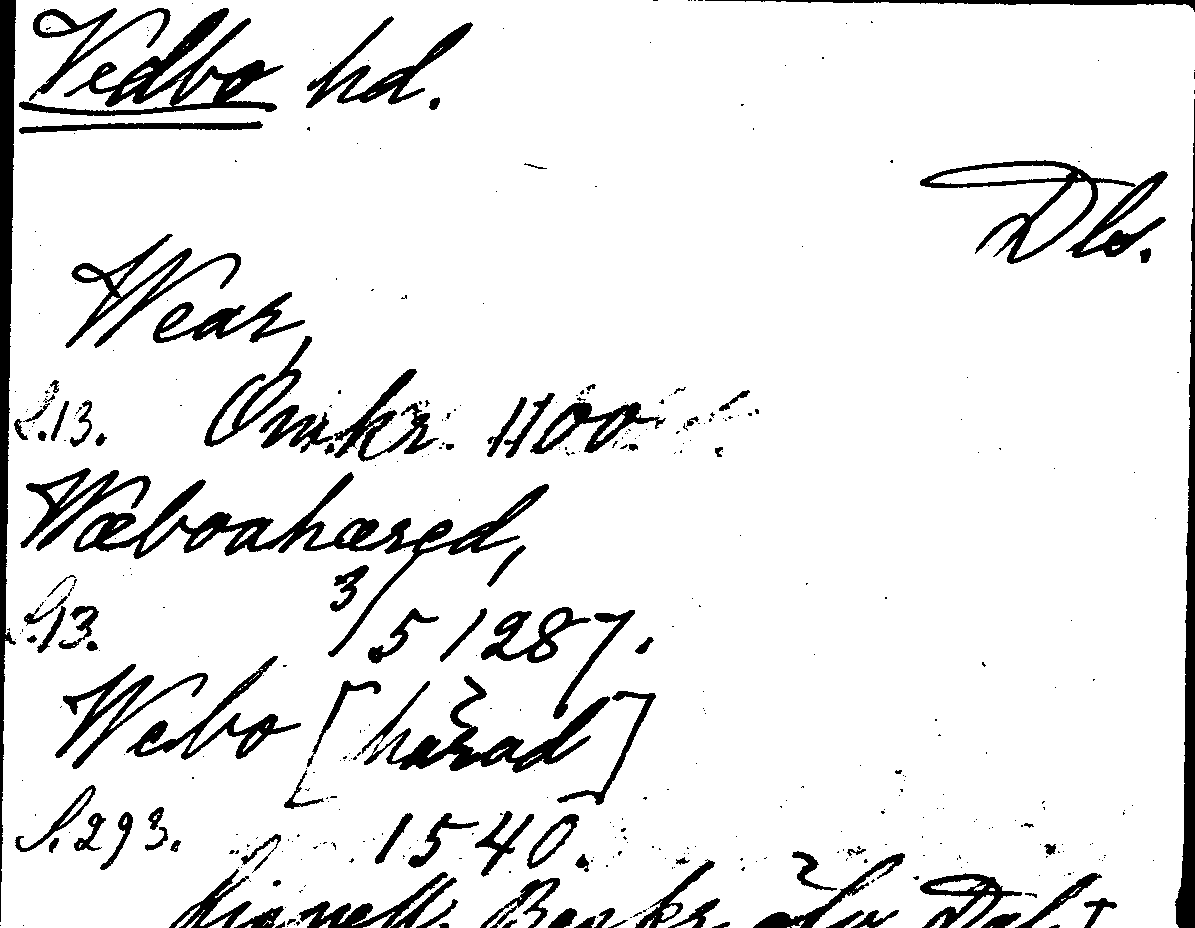 Vedbo hd.
Dls.
Wear,
S.13. Omkr. 1100
Wæboahæred,
S.13. 3/5 1287.
Webo [härad]
S.293. 1540.
Lignell, Beskr. öfv. Dal I